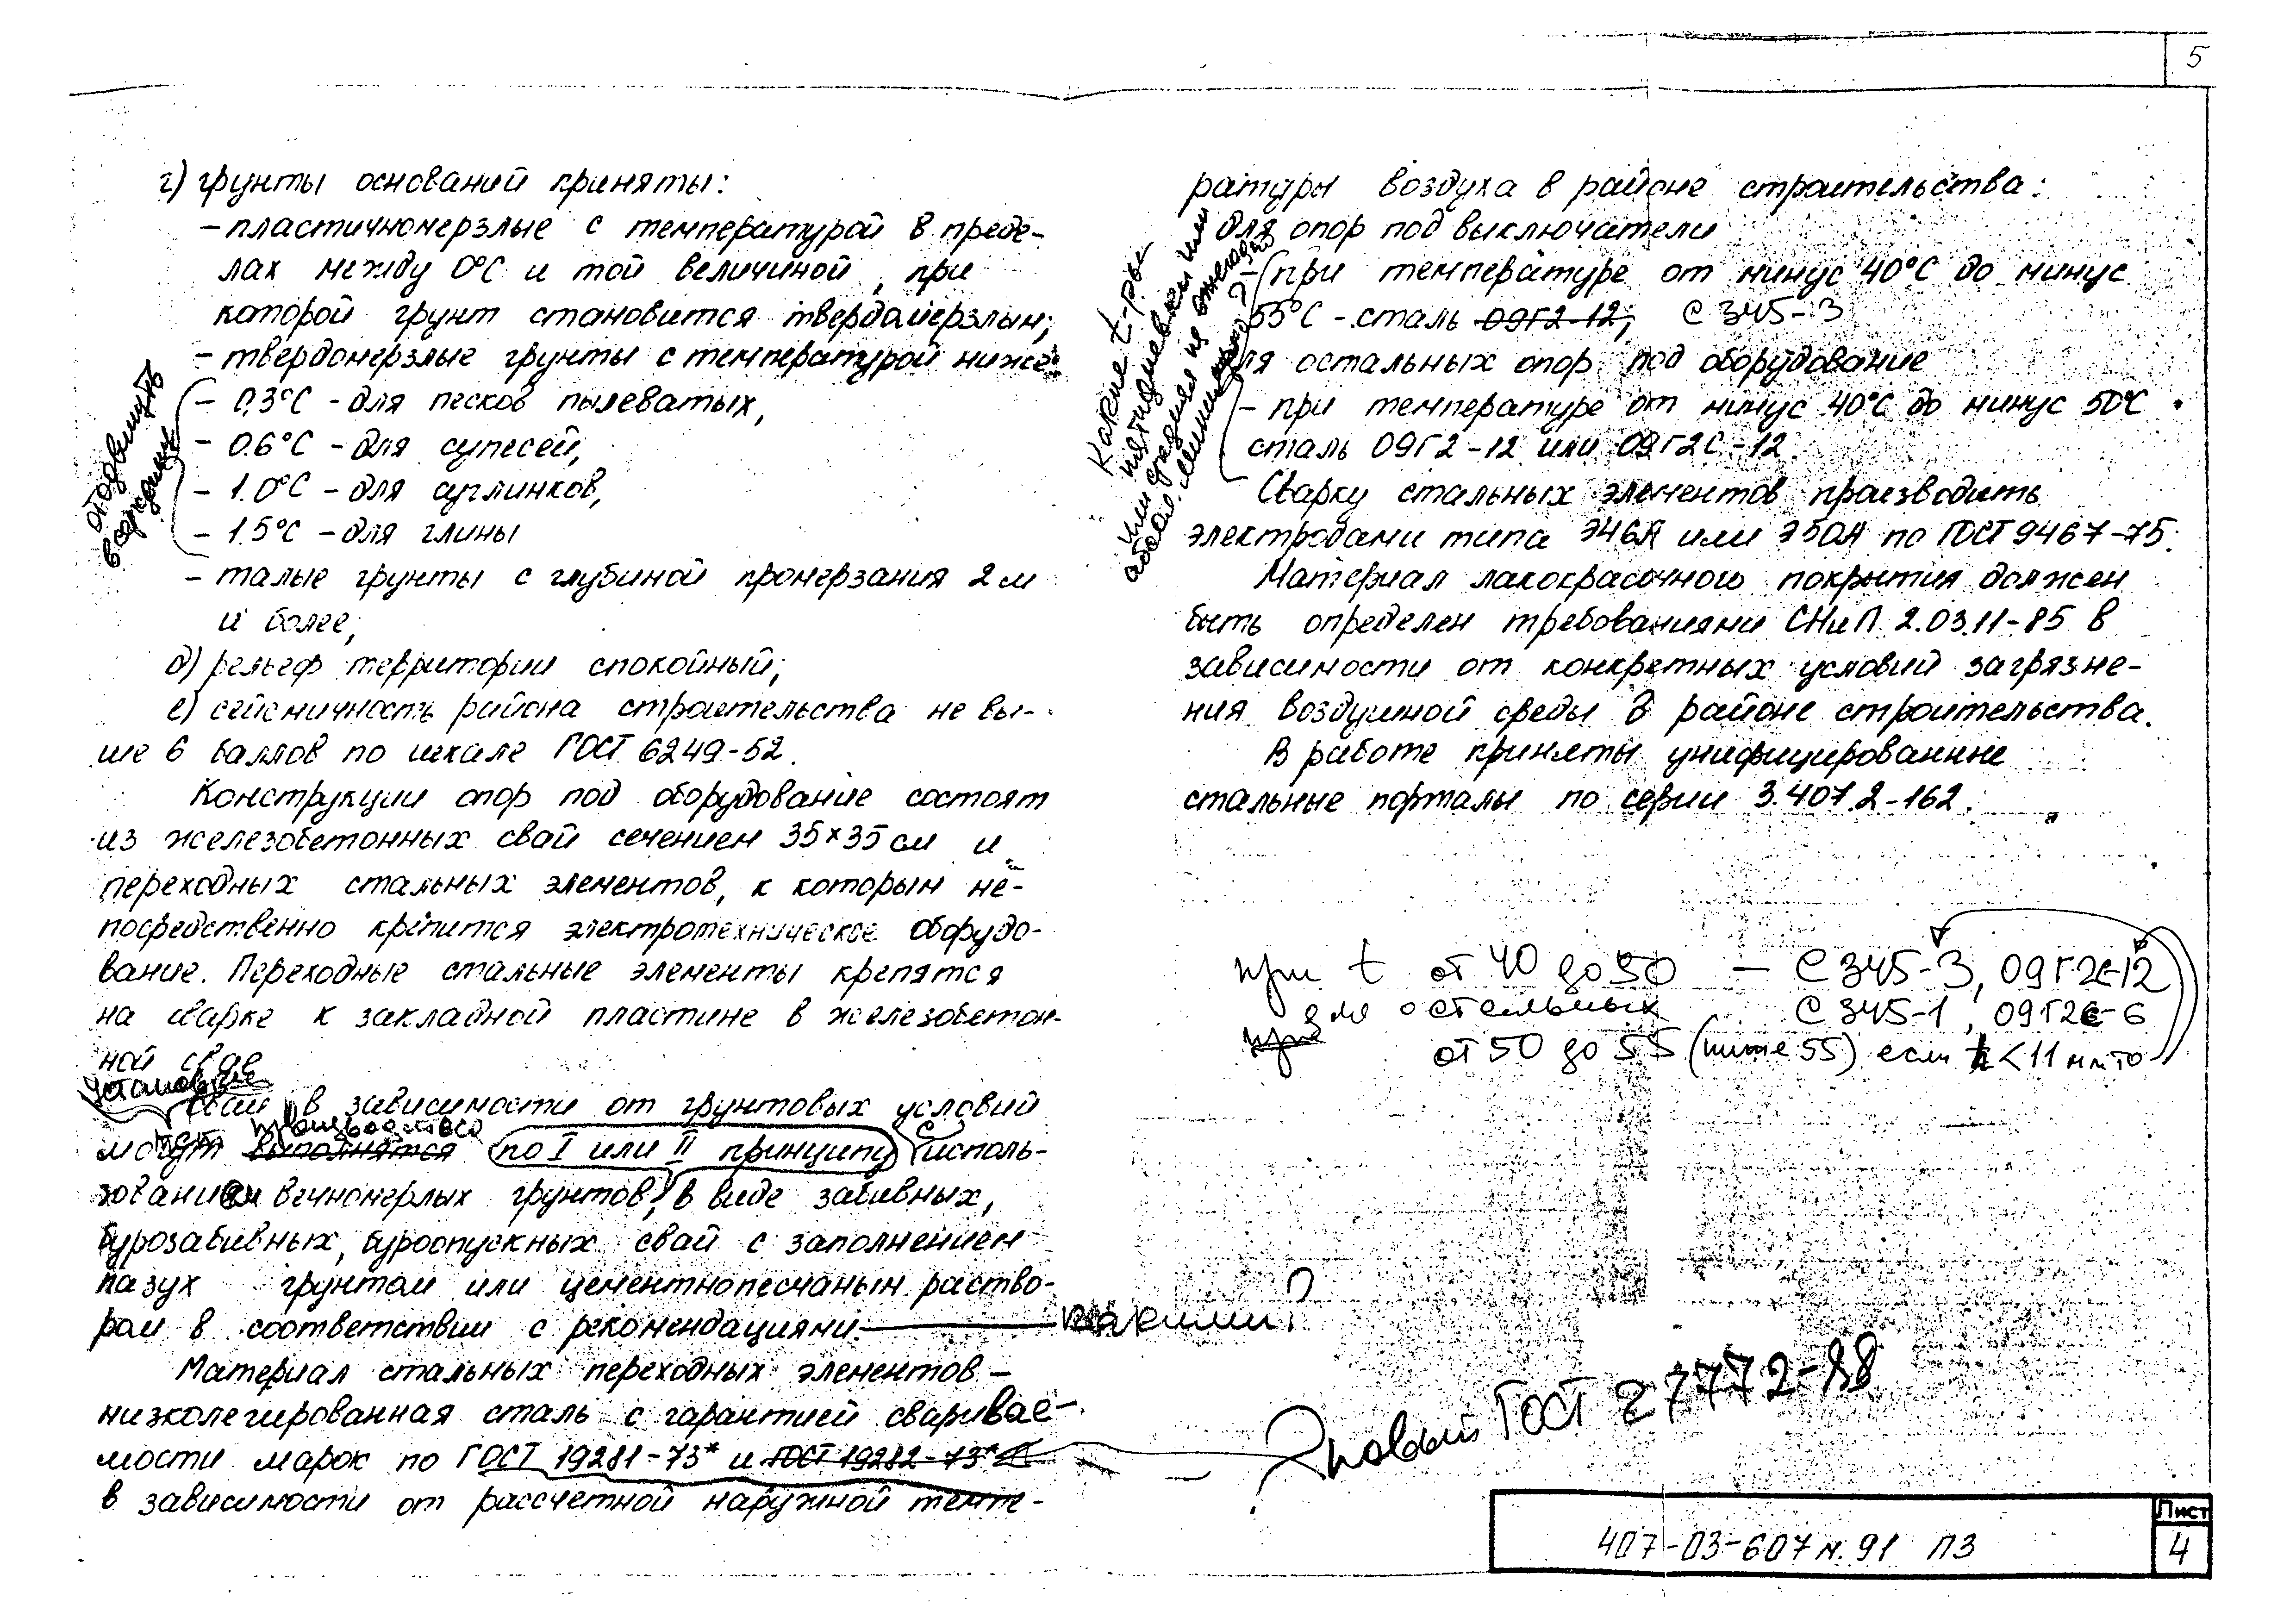 5
г) грунты оснований приняты:
- пластичномерзлые с температурой в преде-
лах между 0°С и той величиной, при
которой грунт становится твердомерзлым;
- твердомерзлые грунты с температурой ниже:
- 0,3°С - для песков пылеватых,
- 0.6°С - для супесей,
- 1.0°С - для суглинков,
- 1.5°С - для глины
отодвинуть
в середину
- талые грунты с глубиной промерзания 2 м
и более;
д) рельеф территории спокойный;
е) сейсмичность района строительства не вы-
ше 6 баллов по шкале ГОСТ 6249-52.
Конструкции опор под оборудование состоят
из железобетонных свай сечением 35×35 см и
переходных стальных элементов, к которым не-
посредственно крепится электротехническое оборудо-
вание. Переходные стальные элементы крепятся
на сварке к закладной пластине в железобетон-
ной свае
Установка
Сваи в зависимости от грунтовых условий
производиться
могут выполнятся по I или II принципу с исполь-
зованием вечномерлых грунтов, в виде забивных,
бурозабивных, буроопускных свай с заполнением
пазух грунтом или цементнопесчаным раство-
ром в соответствии с рекомендациями. какими?
Материал стальных переходных элементов -
низколегированная сталь с гарантией сваривае-
мости марок по ГОСТ 19281-73* и ГОСТ 19282-73*
в зависимости от рассчетной наружной темпе-
ратуры воздуха в районе строительства:
для опор под выключатели
- при температуре от минус 40°С до минус
55°С - сталь 09Г2-12; С 345-3
для остальных опор под оборудование
- при температуре от минус 40°С до минус 50°С
сталь 09Г2-12 или 09Г2С-12.
Какие t-ры
пятидневки или
или средняя из ежегодн
абсол. минимумов?
Сварку стальных элементов производить
электродами типа Э46А или Э50А по ГОСТ 9467-75.
Материал лакокрасочного покрытия должен
быть определен требованиями СНиП 2.03.11-85 в
зависимости от конкретных условий загрязне-
ния воздушной среды в районе строительства.
В работе приняты унифицированные
стальные порталы по серии 3.407.2-162.
при t от 40 до 50 — С 345-3, 09Г2С-12
для остальных С 345-1, 09Г2С-6
при от 50 до 55 (ниже 55) если t < 11 мм то
? новый ГОСТ 27772-88
407-03-607м.91 ПЗ
Лист
4